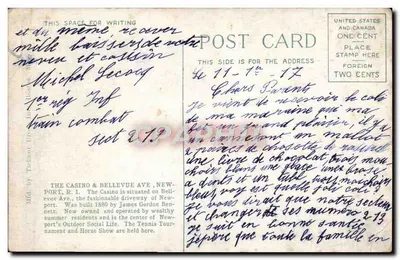 THIS SPACE FOR WRITING
et du même recever
mille baisers de notre
neveu et cousin
Michel Lecocq
1er rég Inf
train combat
sect 213
THE CASINO & BELLEVUE AVE., NEW-
PORT, R. I. The Casino is situated on Belle-
vue Ave., the fashionable driveway of New-
port. Was built 1880 by James Gordon Ben-
nett. Now owned and operated by wealthy
summer residents and is the center of New-
port's Outdoor Social Life. The Tennis Tour-
nament and Horse Show are held here.
POST CARD
THIS SIDE IS FOR THE ADDRESS
UNITED STATES
AND CANADA
ONE CENT
PLACE
STAMP HERE
FOREIGN
TWO CENTS
le 11-1er-17
Chers Parents
je vient de reservoir le colis
de ma maraine que ma
plaisir, il y a
un maillot
paires de chosette
une livre de chocolat trois mou
choirs blans une pipe une brose
a dants et un tube, trois mouchoirs
bleus voyez est quelle jolie colis
et changer de ses numero 213
je suit en bonne santé
j'espère que toute la famille en